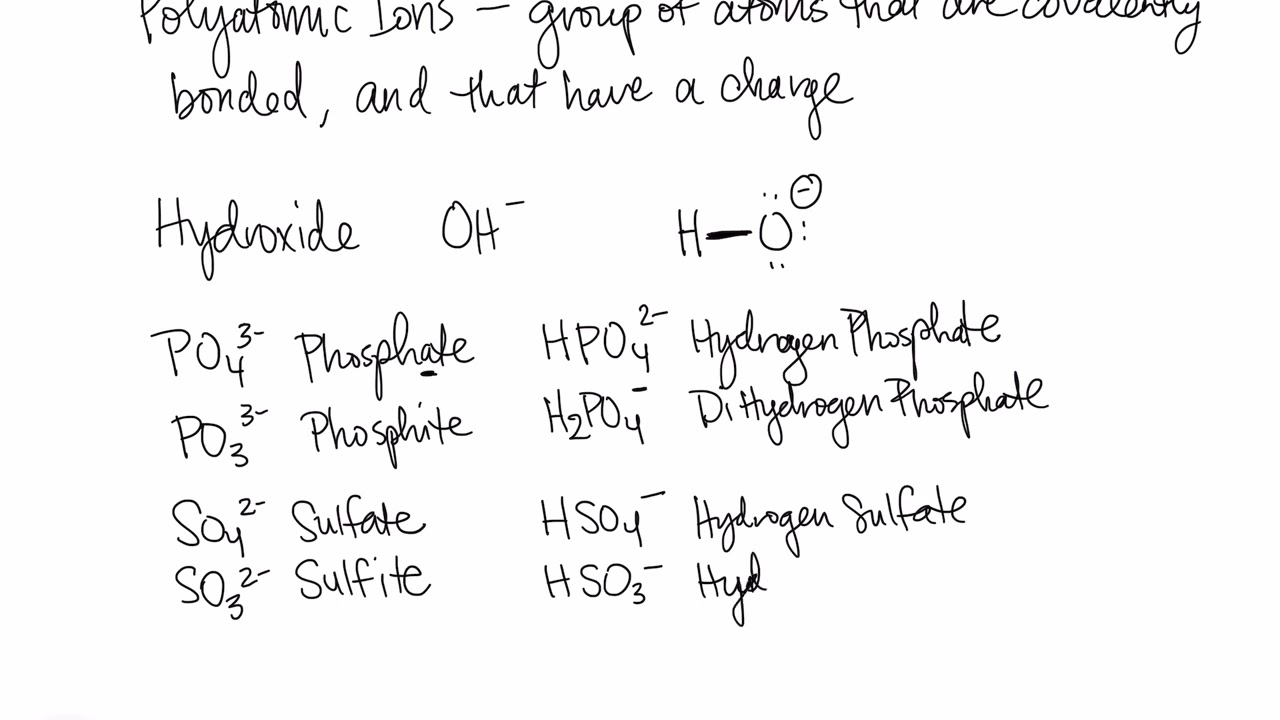 Polyatomic Ions – group of atoms that are covalently
bonded, and that have a charge
Hydroxide OH⁻ H–O:⁻
PO₄³⁻ Phosphate HPO₄²⁻ Hydrogen Phosphate
PO₃³⁻ Phosphite H₂PO₄⁻ DiHydrogen Phosphate
SO₄²⁻ Sulfate HSO₄⁻ Hydrogen Sulfate
SO₃²⁻ Sulfite HSO₃⁻ Hyd